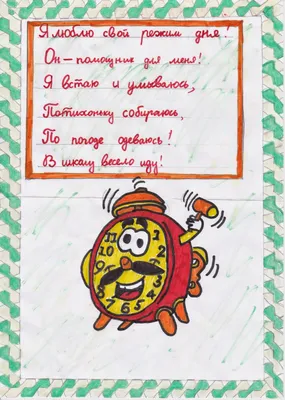 Я люблю свой режим дня!
Он – помощник для меня!
Я встаю и умываюсь,
Потихоньку собираюсь,
По погоде одеваюсь!
В школу весело иду!
11 1
10 2
9 3
8 4
7 6 5